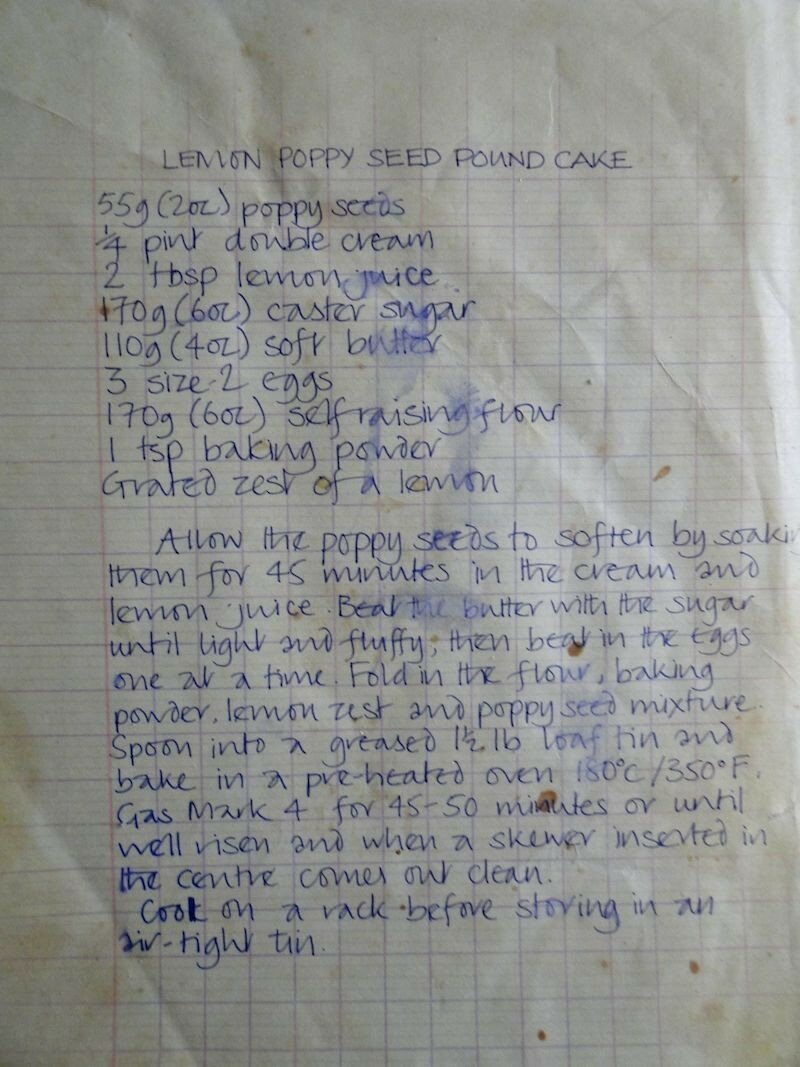 LEMON POPPY SEED POUND CAKE
55g (2oz) poppy seeds
¼ pint double cream
2 tbsp lemon juice
170g (6oz) caster sugar
110g (4oz) soft butter
3 size 2 eggs
170g (6oz) self raising flour
1 tsp baking powder
Grated zest of a lemon
Allow the poppy seeds to soften by soakin
them for 45 minutes in the cream and
lemon juice. Beat the butter with the sugar
until light and fluffy, then beat in the eggs
one at a time. Fold in the flour, baking
powder, lemon zest and poppy seed mixture.
Spoon into a greased 1½ lb loaf tin and
bake in a pre-heated oven 180°C/350°F.
Gas Mark 4 for 45-50 minutes or until
well risen and when a skewer inserted in
the centre comes out clean.
Cook on a rack before storing in an
air-tight tin.